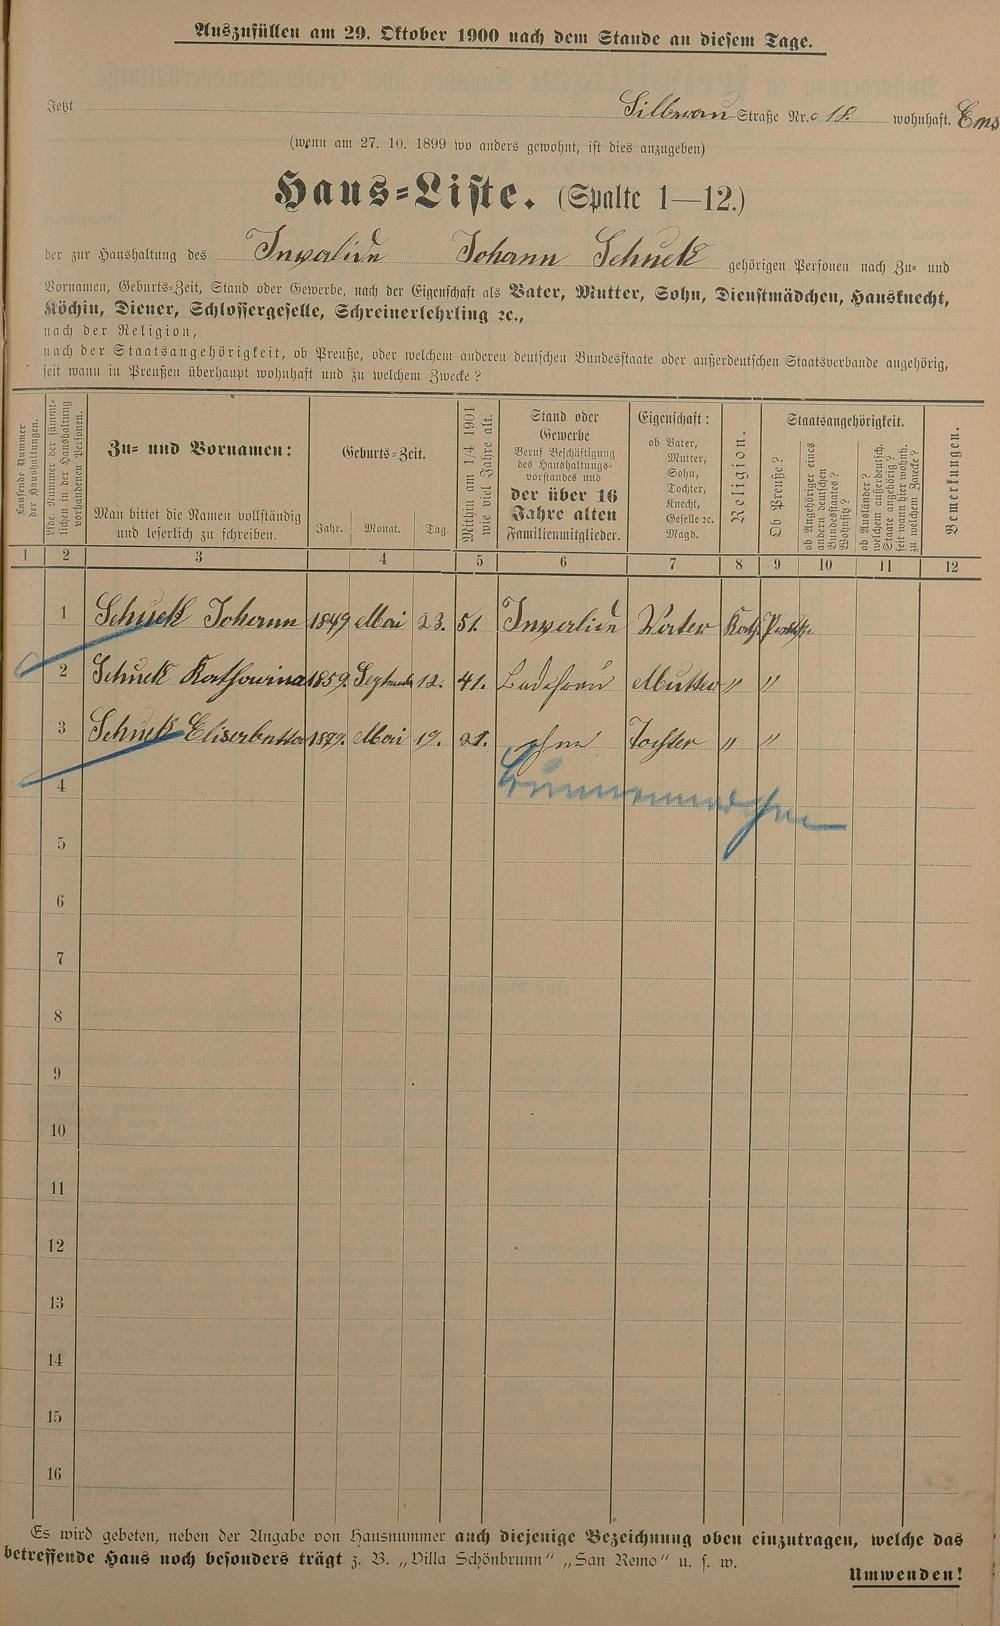 Auszufüllen am 29. Oktober 1900 nach dem Stande an diesem Tage.
Jetzt Silberau Straße Nr. 18. wohnhaft. Ems
(wenn am 27. 10. 1899 wo anders gewohnt, ist dies anzugeben)
Haus-Liste. (Spalte 1—12.)
der zur Haushaltung des Invalide Johann Schuck gehörigen Personen nach Zu- und
Vornamen, Geburts-Zeit, Stand oder Gewerbe, nach der Eigenschaft als Vater, Mutter, Sohn, Dienstmädchen, Hausknecht,
Köchin, Diener, Schlossergeselle, Schreinerlehrling ꝛc.,
nach der Religion,
nach der Staatsangehörigkeit, ob Preuße, oder welchem anderen deutschen Bundesstaate oder außerdeutschen Staatsverbande angehörig,
seit wann in Preußen überhaupt wohnhaft und zu welchem Zwecke?
Laufende Nummer der Haushaltungen.
Lfde. Nummer der sämmtlichen in der Haushaltung vorhandenen Personen.
Zu- und Vornamen:
Man bittet die Namen vollständig
und leserlich zu schreiben.
Geburts-Zeit.
Jahr. Monat. Tag.
Mithin am 1/4 1901 wie viel Jahre alt.
Stand oder
Gewerbe
Beruf Beschäftigung
des Haushaltungs-
vorstandes und
der über 16
Jahre alten
Familienmitglieder.
Eigenschaft:
ob Vater,
Mutter,
Sohn,
Tochter,
Knecht,
Geselle ꝛc.
Magd.
Religion.
Staatsangehörigkeit.
Ob Preuße?
ob Angehöriger eines andern deutschen Bundesstaates? Wohnsitz?
ob Ausländer? welchem außerdeutsch. Staate angehörig? seit wann hier wohnh. zu welchem Zwecke?
Bemerkungen.
1 2 3 4 5 6 7 8 9 10 11 12
1 Schuck Johann 1849 Mai 23. 51. Invalide Vater Kath. Preuße
2 Schuck Katharina 1859. September 12. 41. Badefrau Mutter " "
3 Schuck Elisabetha 1879. Mai 19. 21. ohne Tochter " "
4 Brunnenmädchen
5
6
7
8
9
10
11
12
13
14
15
16
Es wird gebeten, neben der Angabe von Hausnummer auch diejenige Bezeichnung oben einzutragen, welche das
betreffende Haus noch besonders trägt z. B. „Villa Schönbrunn“ „San Remo“ u. s. w.
Umwenden!